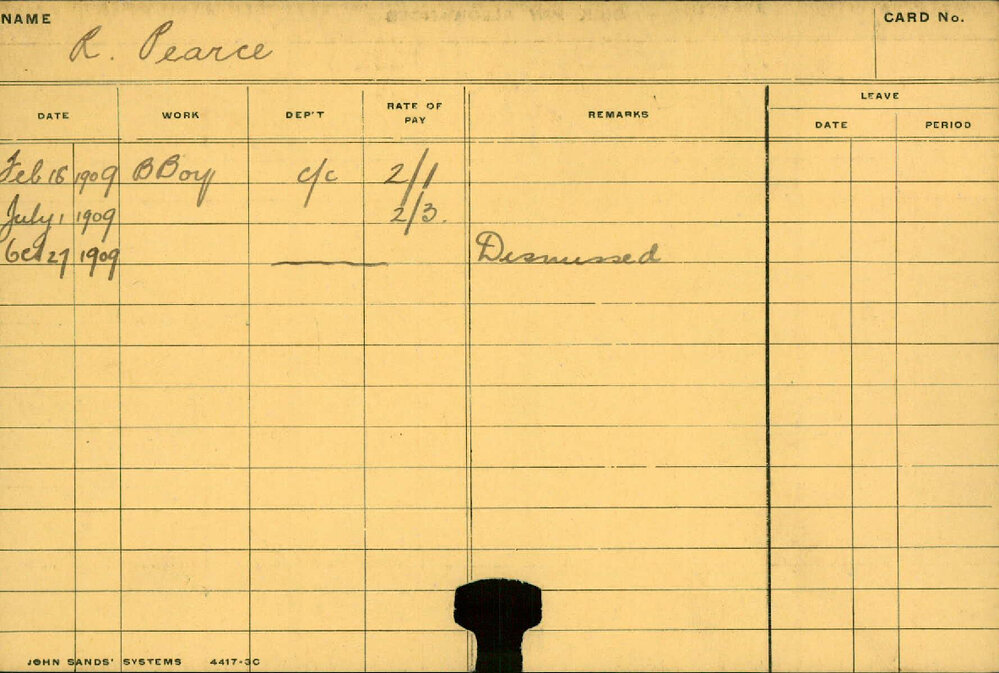 NAME
R. Pearce
CARD No.
DATE WORK DEP'T RATE OF PAY REMARKS LEAVE
DATE PERIOD
Feb 18 1909 B Boy c/c 2/1
July 1 1909 2/3.
Oct 27 1909 Dismissed
JOHN SANDS' SYSTEMS 4417-3C